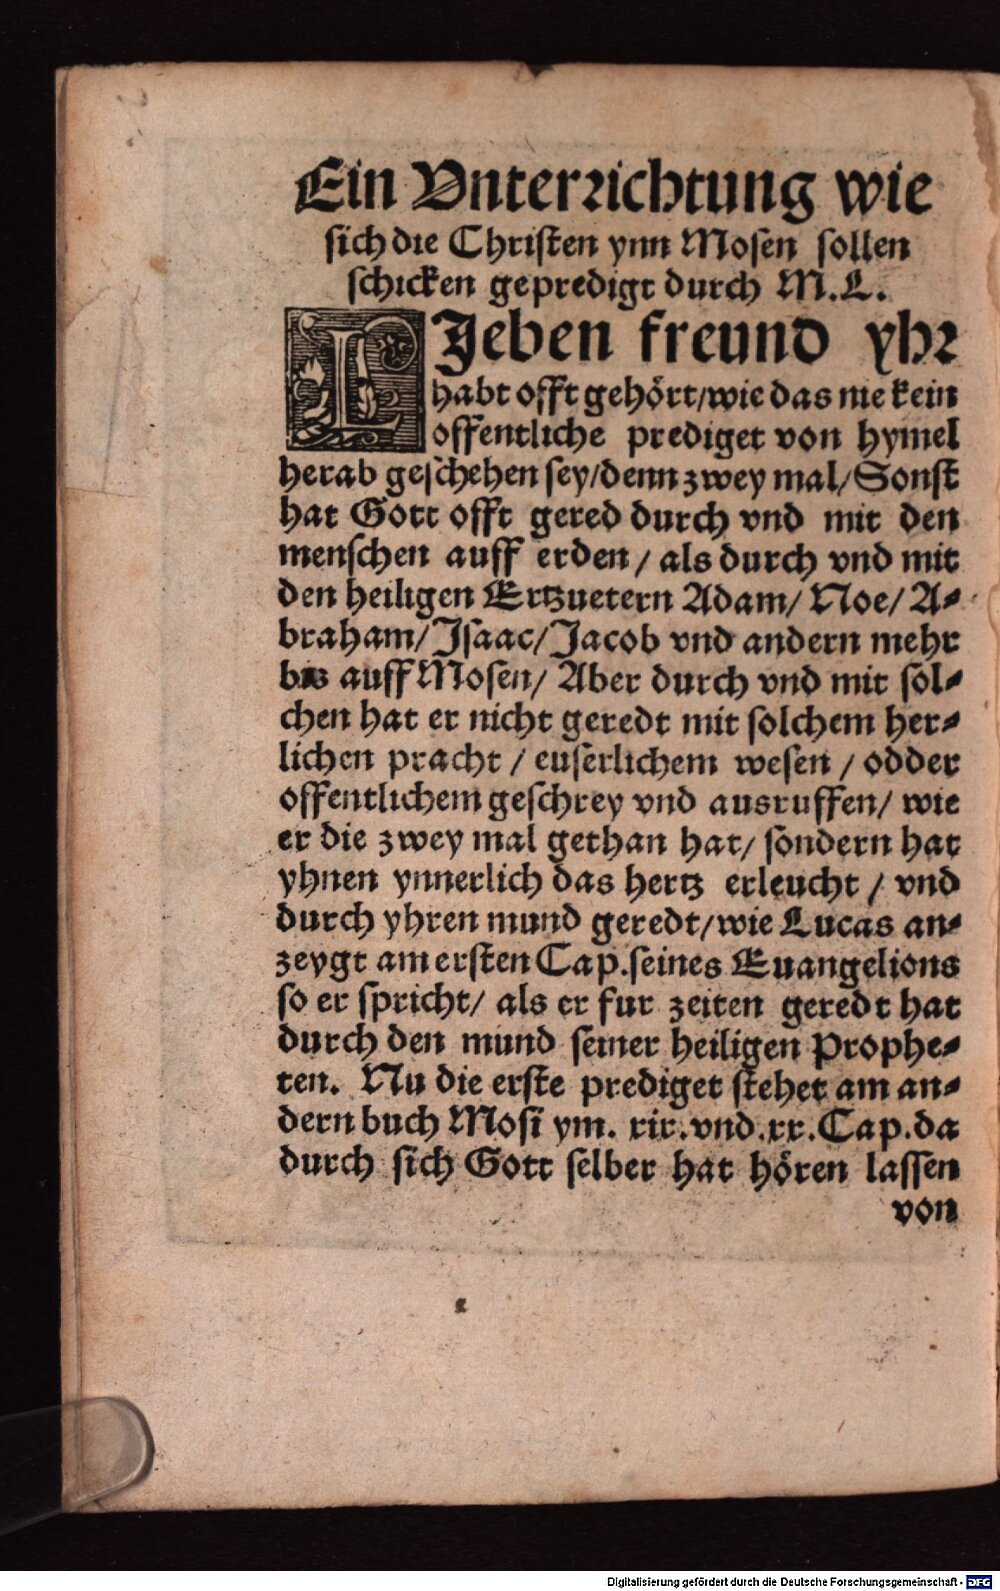 Ein Vnterrichtung wie
sich die Christen ynn Mosen sollen
schicken gepredigt durch M.L.
LJeben freund yhr
habt offt gehört/wie das nie kein
offentliche prediget von hymel
herab geschehen sey/denn zwey mal/Sonst
hat Gott offt gered durch vnd mit den
menschen auff erden/als durch vnd mit
den heiligen Ertzuetern Adam/Noe/A-
braham/Jsaac/Jacob vnd andern mehr
bis auff Mosen/Aber durch vnd mit sol-
chen hat er nicht geredt mit solchem her-
lichen pracht/euserlichem wesen/odder
offentlichem geschrey vnd ausruffen/wie
er die zwey mal gethan hat/sondern hat
yhnen ynnerlich das hertz erleucht/vnd
durch yhren mund geredt/wie Lucas an-
zeygt am ersten Cap.seines Euangelions
so er spricht/als er fur zeiten geredt hat
durch den mund seiner heiligen Prophe-
ten. Nu die erste prediget stehet am an-
dern buch Mosi ym. xix.vnd.xx.Cap.da
durch sich Gott selber hat hören lassen
von
Digitalisierung gefördert durch die Deutsche Forschungsgemeinschaft - DFG